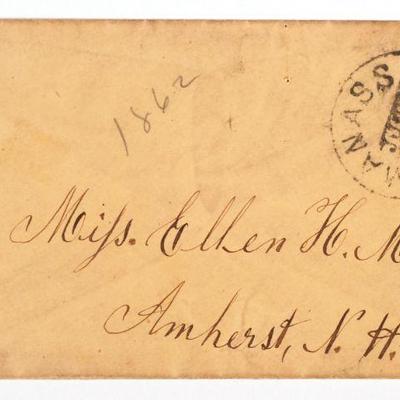 1862
MANASS
Miss. Ellen H. M
Amherst, N. H.